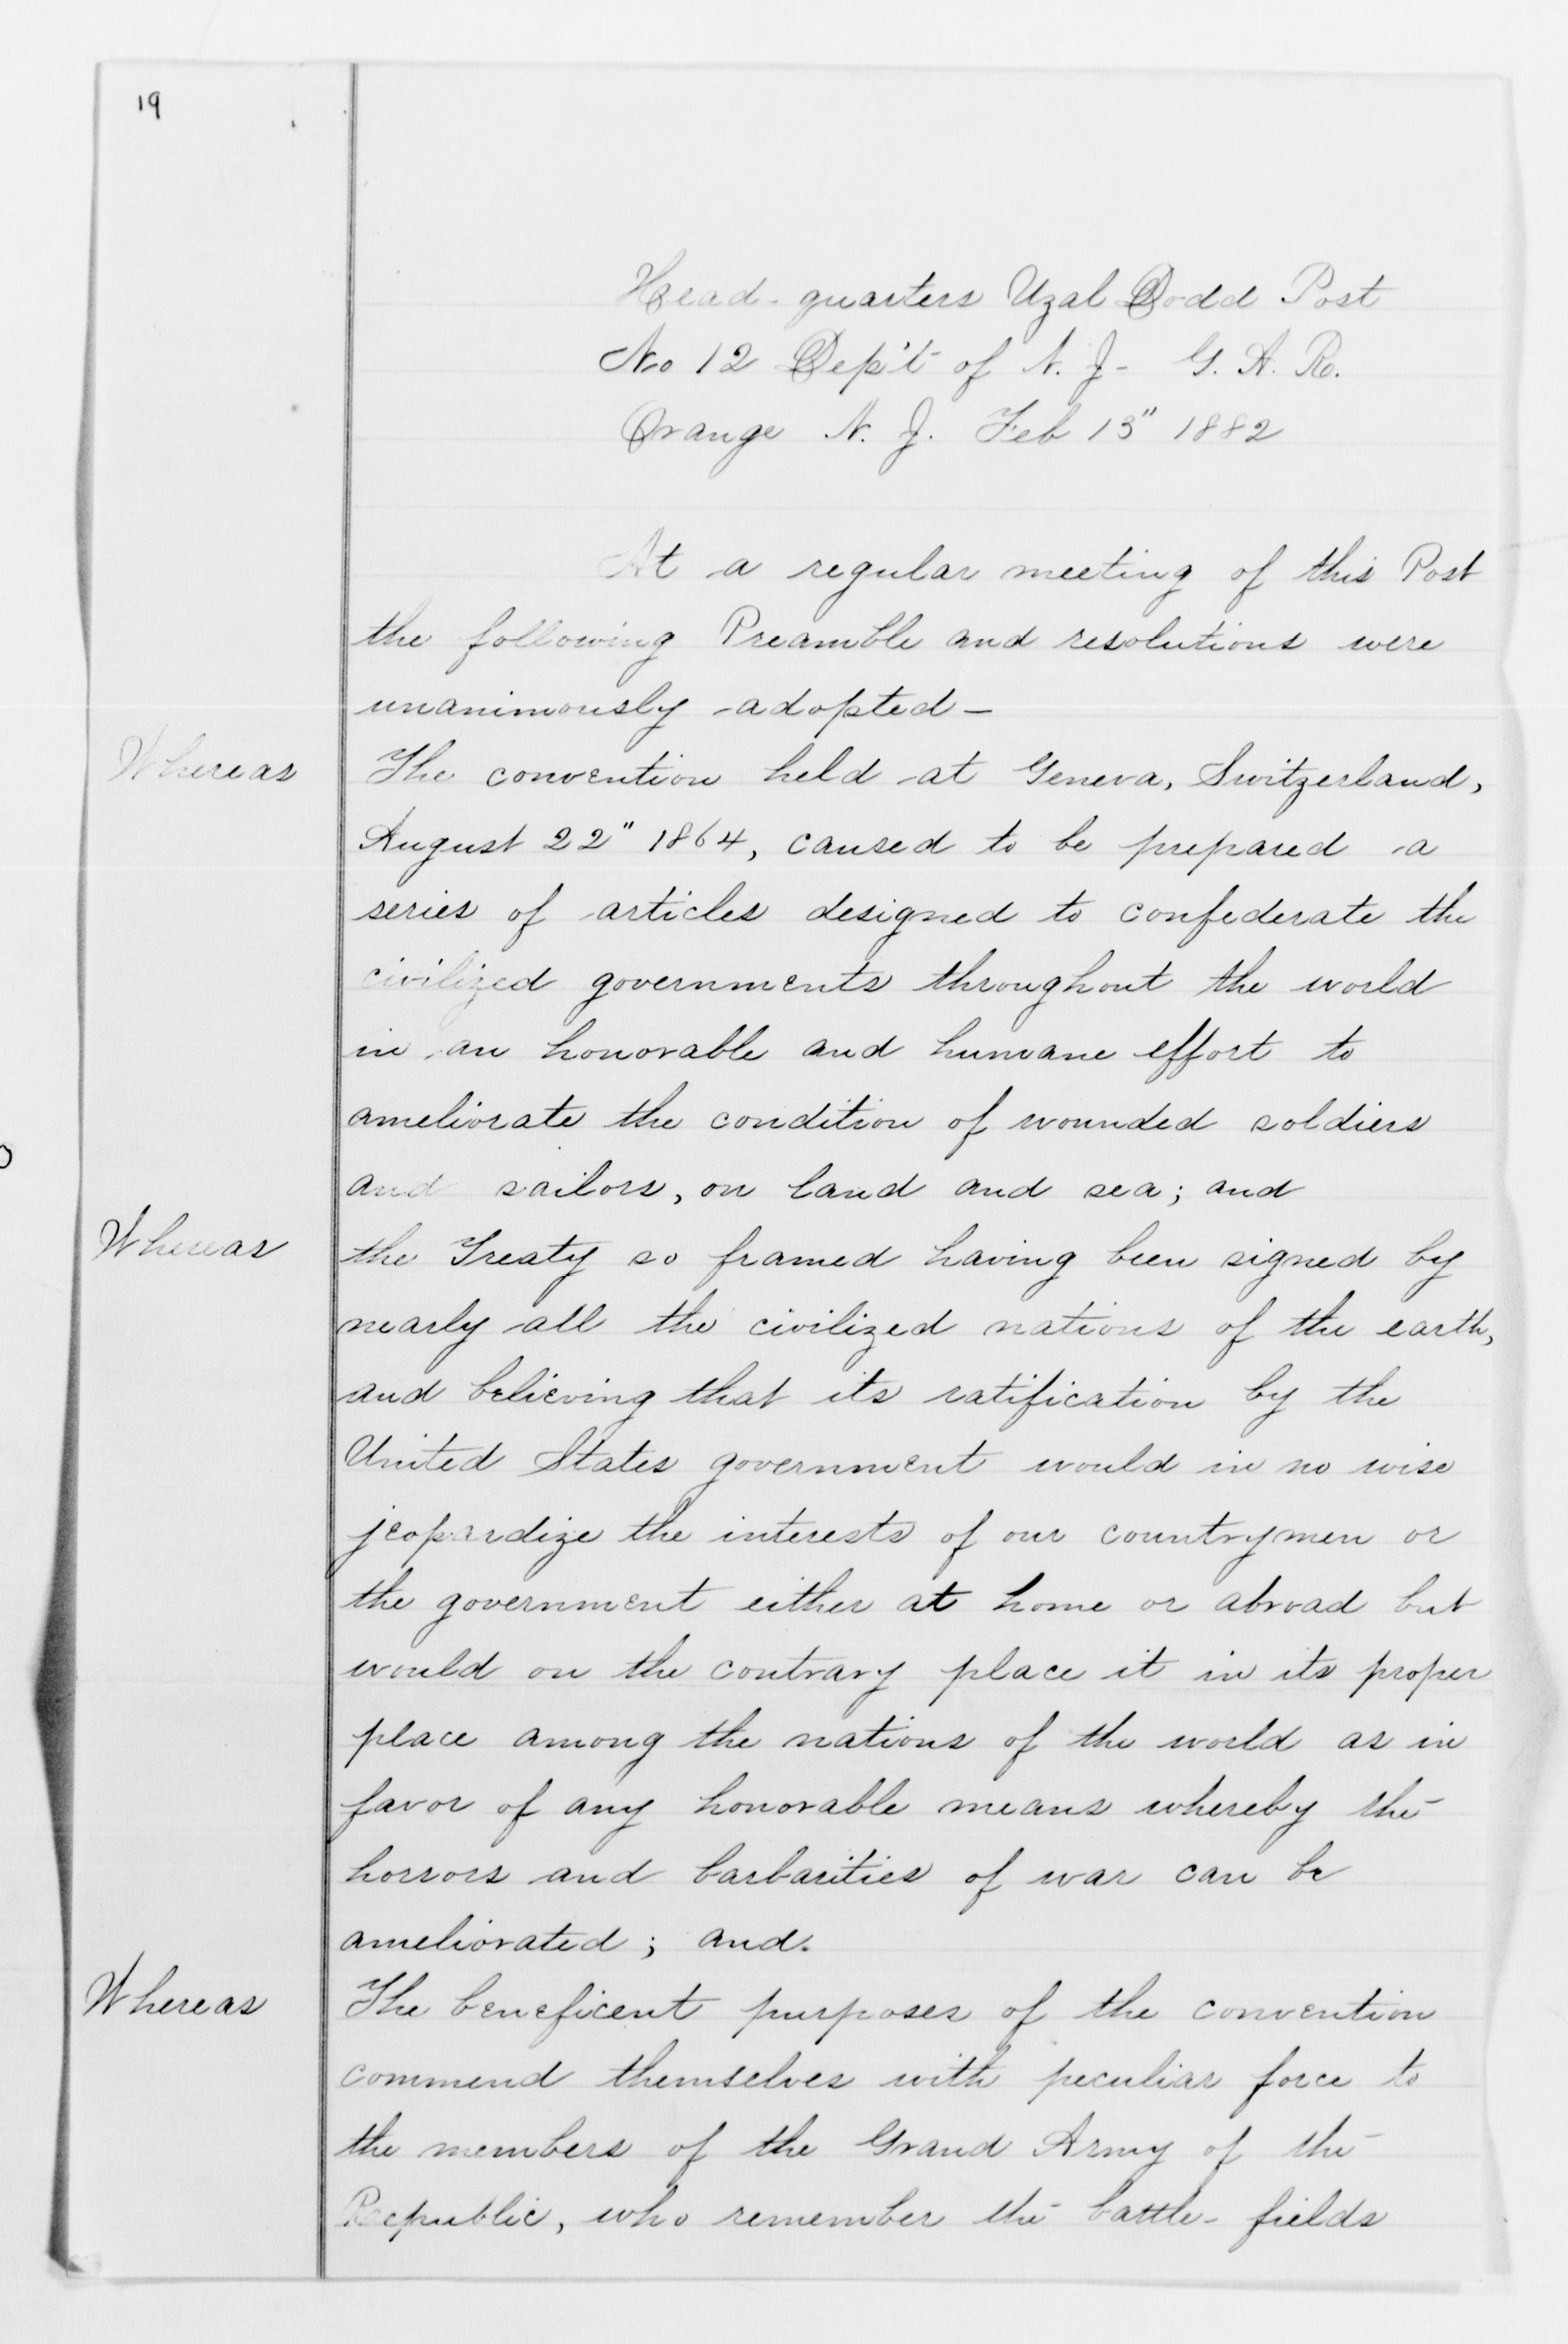 19
Head-quarters Uzal Dodd Post
No 12 Dep't of N. J- G. A. R.
Orange N. J. Feb 13" 1882
At a regular meeting of this Post
the following Preamble and resolutions were
unanimously adopted-
Whereas The convention held at Geneva, Switzerland,
August 22" 1864, caused to be prepared a
series of articles designed to confederate the
civilized governments throughout the world
in an honorable and humane effort to
ameliorate the condition of wounded soldiers
and sailors, on land and sea; and
Whereas the Treaty so framed having been signed by
nearly all the civilized nations of the earth,
and believing that its ratification by the
United States government would in no wise
jeopardize the interests of our countrymen or
the government either at home or abroad but
would on the contrary place it in its proper
place among the nations of the world as in
favor of any honorable means whereby the
horrors and barbarities of war can be
ameliorated; and.
Whereas The beneficent purposes of the convention
commend themselves with peculiar force to
the members of the Grand Army of the
Republic, who remember the battle-fields